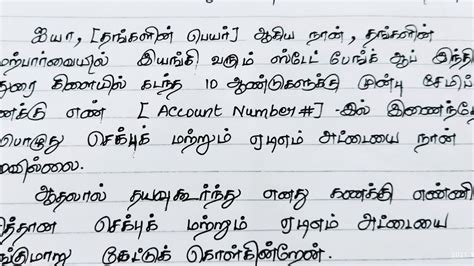 ஐயா, [தங்களின் பெயர்] ஆகிய நான், தங்களின்
மற்பார்வையில் இயங்கி வரும் ஸ்டேட் பேங்க் ஆப் இந்தி
துரை கிளையில் கடந்த 10 ஆண்டுகளுக்கு முன்பு சேமிப்
ணக்கு எண் [Account Number#] -இல் இணைந்தே
பொழுது செக்புக் மற்றும் ஏடிஎம் அட்டையை நான்
றவில்லை.
ஆதலால் தயவுகூர்ந்து எனது கணக்கி எண்ணி
த்தான செக்புக் மற்றும் ஏடிஎம் அட்டையை
ங்குமாறு கேட்டுக் கொள்கின்றேன்.